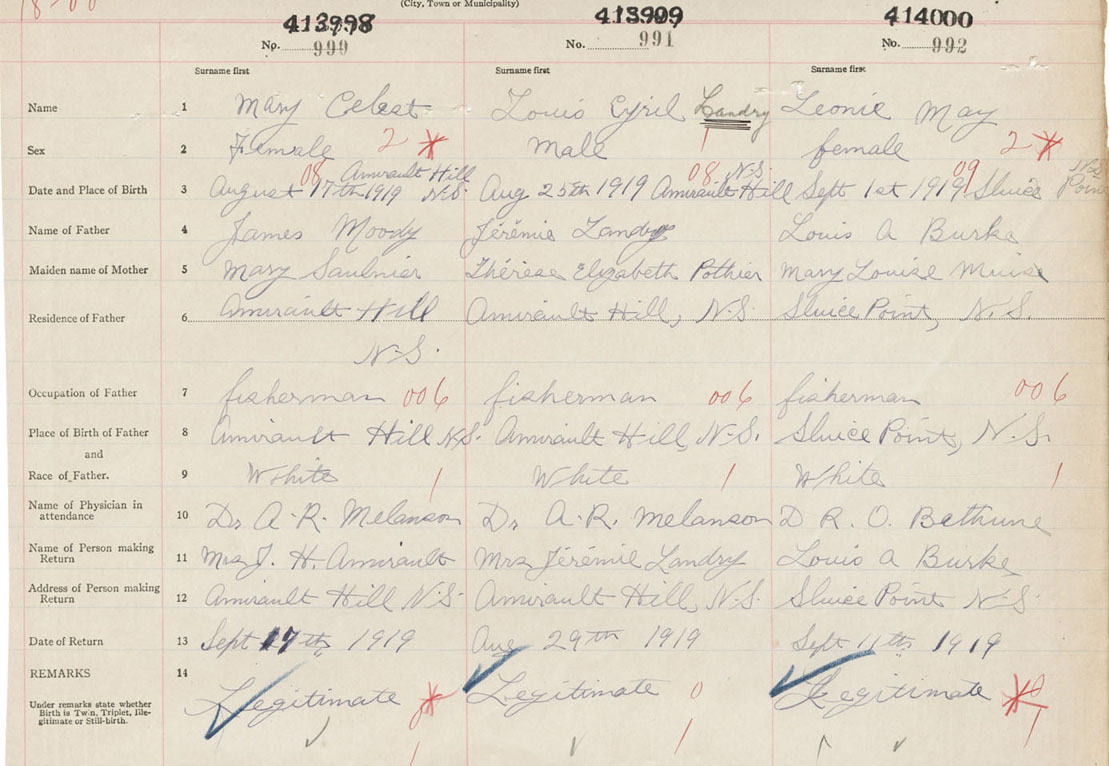 (City, Town or Municipality)
413998 413999 414000
No. 990 No. 991 No. 992
Surname first Surname first Surname first
Name 1 Mary Celest Louis Cyril Landry Leonie May
Sex 2 Female 2 Male 1 female 2
08 Amirault Hill 08 N.S. 09
Date and Place of Birth 3 August 17th 1919 N.S. Aug 25th 1919 Amirault Hill Sept 1st 1919 Sluice Point
Name of Father 4 James Moody Jérémie Landry Louis A Burke
Maiden name of Mother 5 Mary Saulnier Thérèse Elizabeth Pothier Mary Louise Muise
Residence of Father 6 Amirault Hill Amirault Hill, N.S. Sluice Point, N.S.
N.S.
Occupation of Father 7 fisherman 006 fisherman 006 fisherman 006
Place of Birth of Father 8 Amirault Hill N.S. Amirault Hill, N.S. Sluice Point, N.S.
and
Race of Father. 9 White 1 White 1 White 1
Name of Physician in
attendance 10 Dr A. R. Melanson Dr A. R. Melanson D R. O. Bethune
Name of Person making
Return 11 Mrs J. H. Amirault Mrs Jérémie Landry Louis A Burke
Address of Person making
Return 12 Amirault Hill N.S. Amirault Hill, N.S. Sluice Point N.S.
Date of Return 13 Sept 17th 1919 Aug 29th 1919 Sept 11th 1919
REMARKS 14
Legitimate Legitimate 0 Legitimate
Under remarks state whether
Birth is Twin, Triplet, Ille-
gitimate or Still-birth.
1 1 1